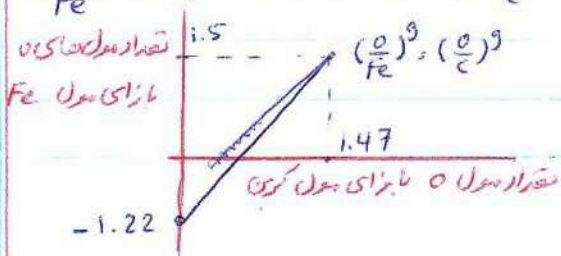 Fe
1.5
تعداد مول های O
بازای مول Fe
(O/Fe)^g , (O/C)^g
1.47
تعداد مول O بازای مول کربن
-1.22